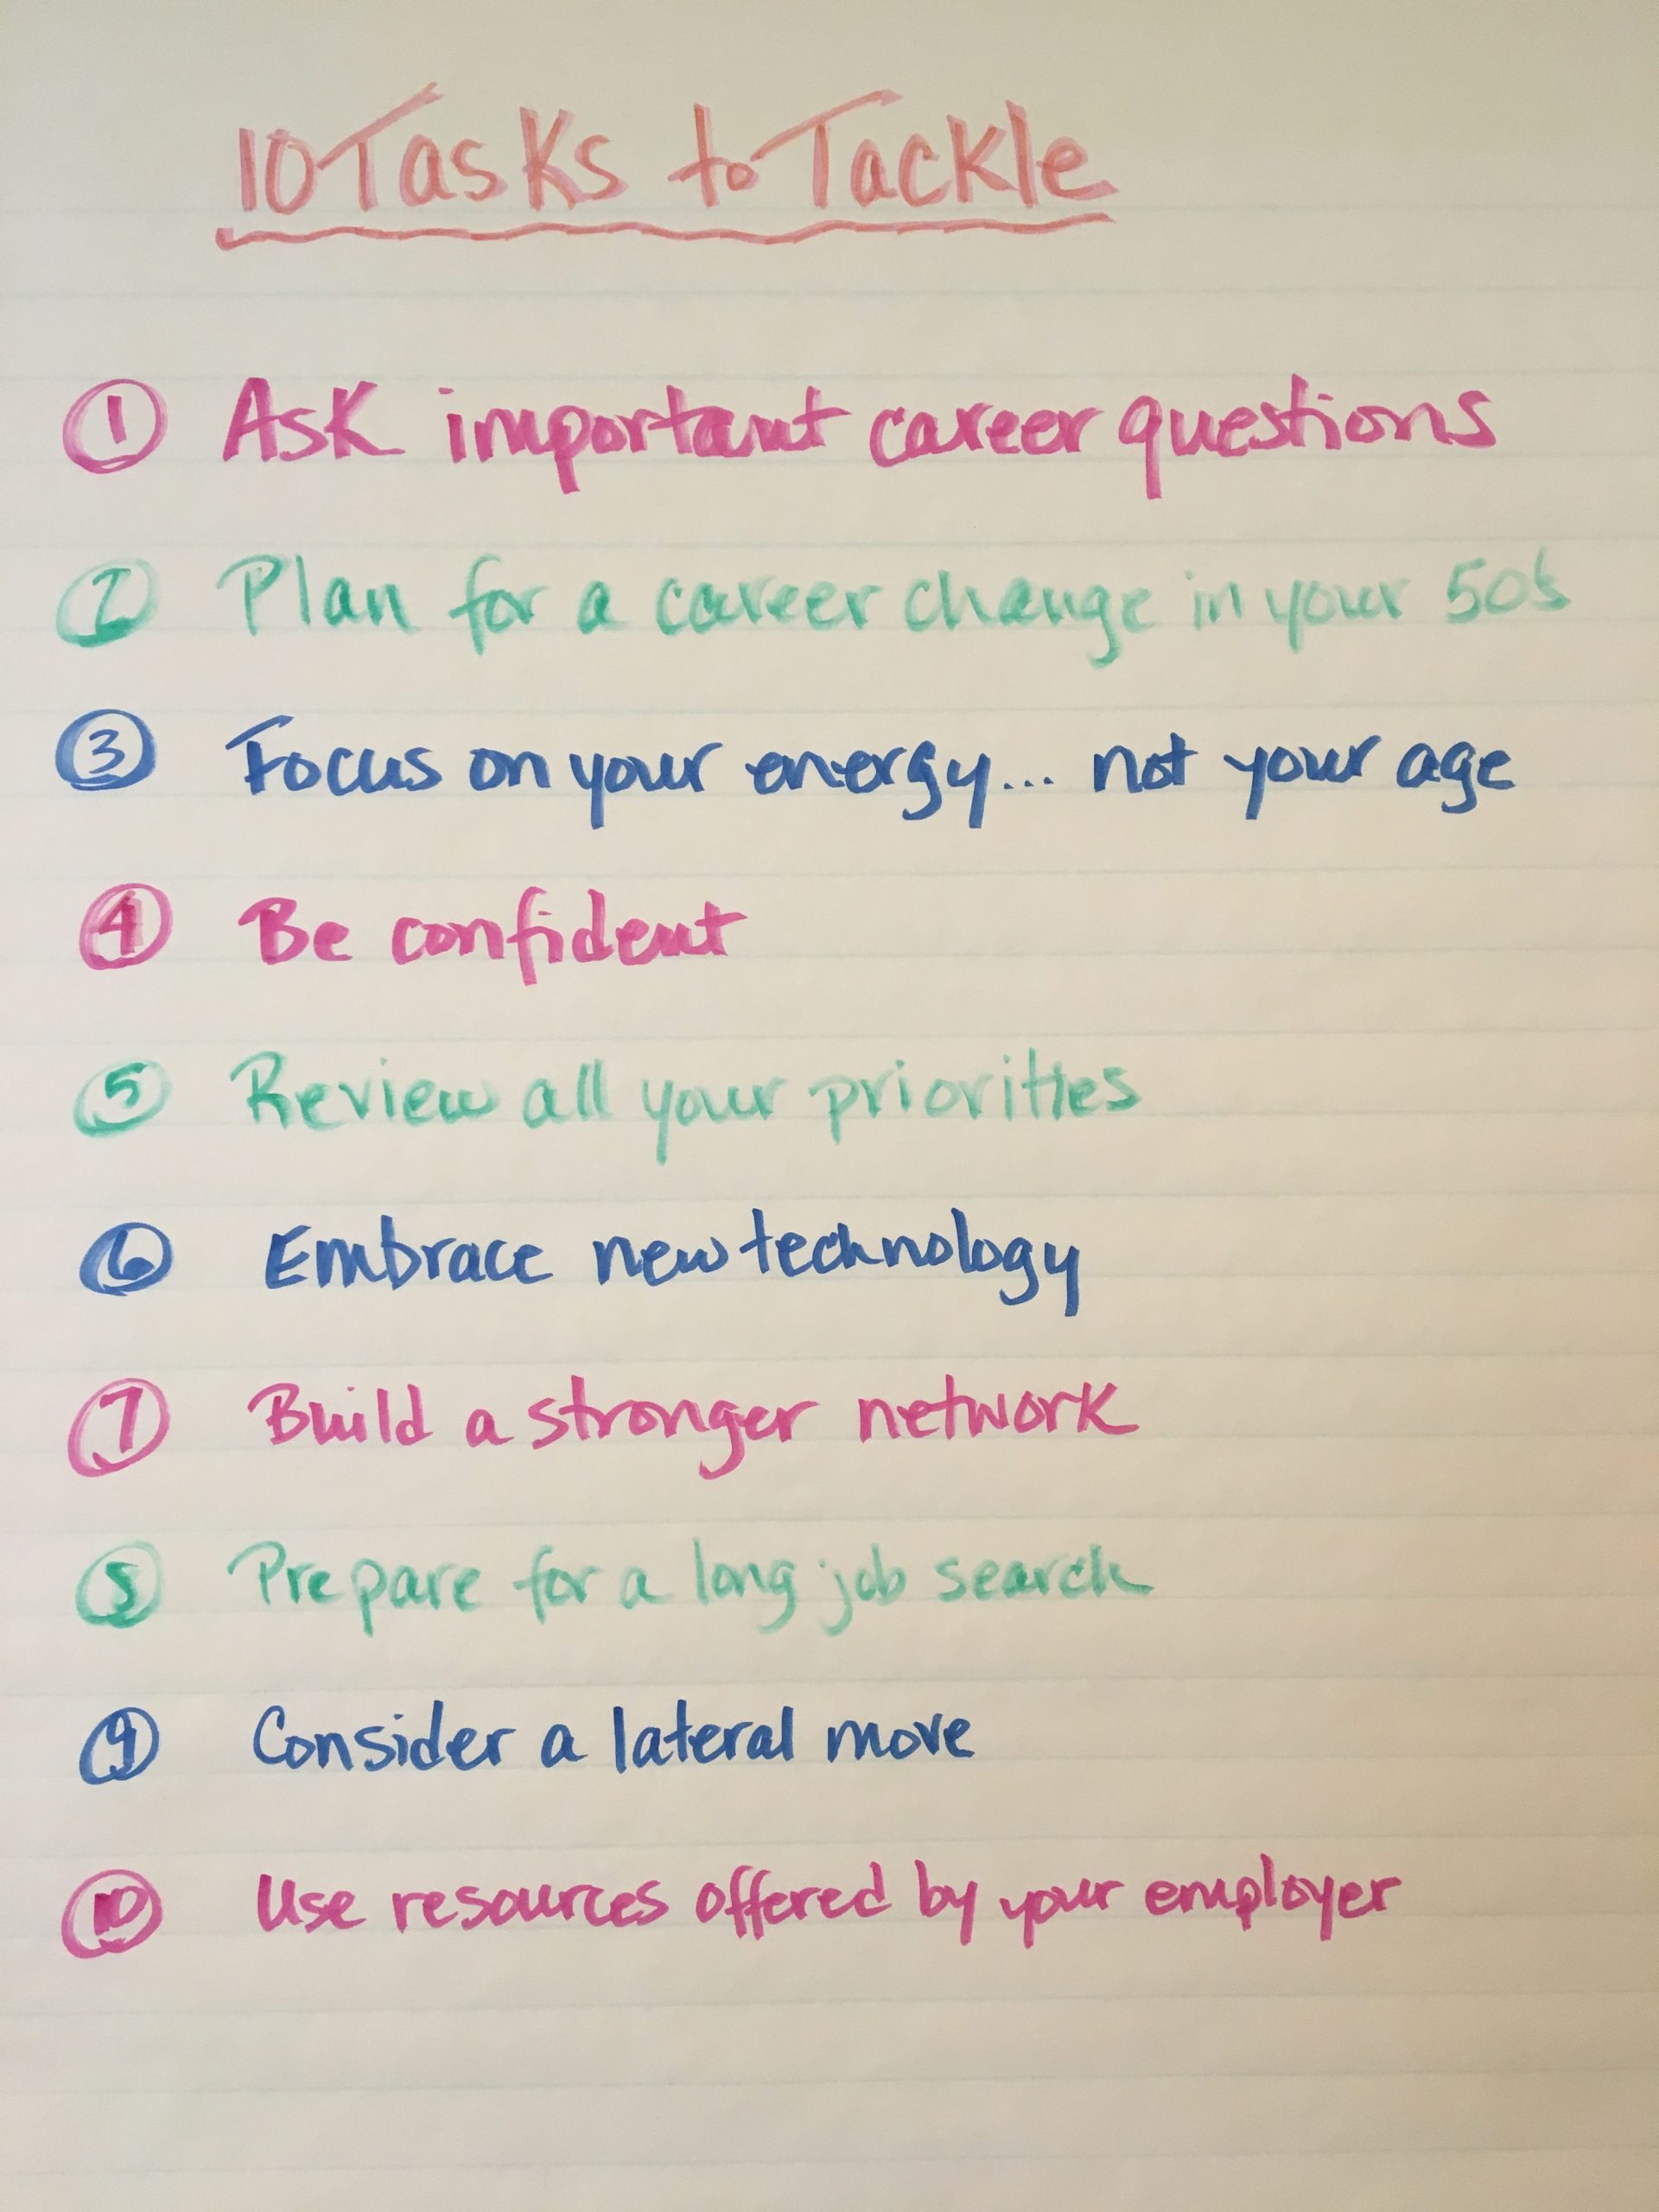 10 Tasks to Tackle
1 Ask important career questions
2 Plan for a career change in your 50's
3 Focus on your energy... not your age
4 Be confident
5 Review all your priorities
6 Embrace new technology
7 Build a stronger network
8 Prepare for a long job search
9 Consider a lateral move
10 Use resources offered by your employer